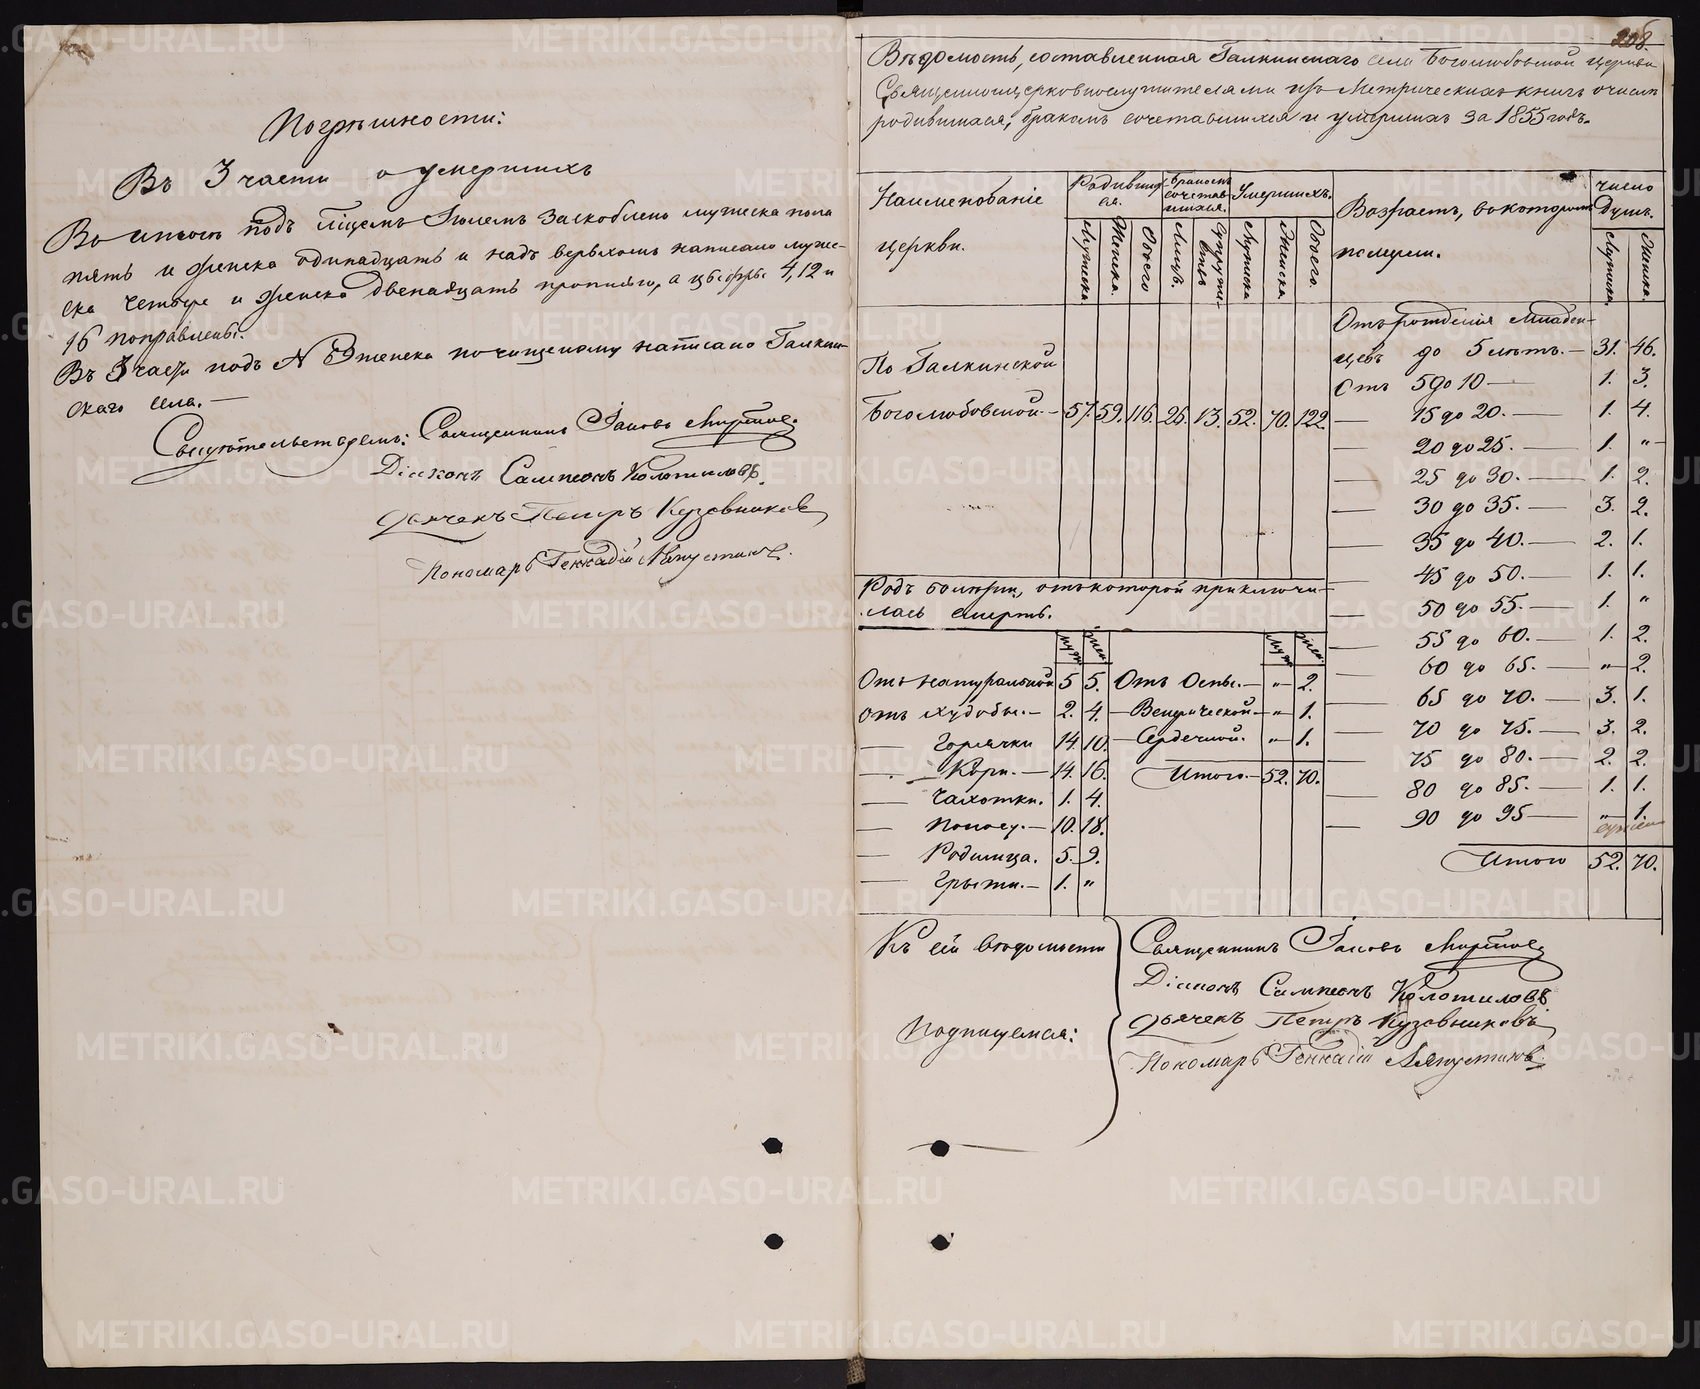 Погрѣшности:
Въ 3 части о умершихъ
Во итогѣ подъ мѣсяцемъ Іюлемъ заскоблено мужеска пола
пять и женска одинадцать и надъ верьхомъ написано муже-
ска четыре и женска двенадцать прописью, а цыфры 4, 12 и
16 поправлены.
Въ 3 части подъ № женска почищеному написано Галкин-
скаго села. —
Свидѣтельствуемъ: Священникъ Іаковъ
Діаконъ Сампсонъ Колотиловъ.
Дьячекъ Петръ Кузовниковъ
Пономарь Геннадій Ляпустинъ.
208
Вѣдомость, составленная Галкинскаго села Боголюбовской церкви
Священноцерковнослужителями изъ Метрическихъ книгъ о числѣ
родившихся, бракомъ сочетавшихся и умершихъ за 1855 годъ.
Наименованіе церкви. Родившихся. Бракомъ сочетавшихся. Умершихъ. Возрастъ, въ которомъ померли. Число душъ.
Мужеска Женска. Обоего Лицъ. Супружествъ Мужеска Женска. Обоего. Мужеска. Женска.
По Галкинской
Боголюбовской. — 57. 59. 116. 26. 13. 52. 70. 122.
Отъ рожденія младен-
цевъ до 5 лѣтъ. — 31. 46.
Отъ 5 до 10 — 1. 3.
— 15 до 20. — 1. 4.
— 20 до 25. — 1. „
— 25 до 30. — 1. 2.
— 30 до 35. — 3. 2.
— 35 до 40. — 2. 1.
— 45 до 50. — 1. 1.
— 50 до 55. — 1. „
— 55 до 60. — 1. 2.
— 60 до 65. — „ 2.
— 65 до 70. — 3. 1.
— 70 до 75. — 3. 2.
— 75 до 80. — 2. 2.
— 80 до 85. — 1. 1.
— 90 до 95 — „ 1.
Итого 52. 70.
Родъ болѣзни, отъ которой приключи-
лась смерть.
муж. жен. муж. жен.
Отъ натуральной 5 5. Отъ Оспы. — „ 2.
Отъ худобы. — 2. 4. — Венерической — „ 1.
— Горячки 14. 10. — Сердечной. „ 1.
— Кори. — 14. 16. Итого. — 52. 70.
— Чахотки. 1. 4.
— Поносу. — 10. 18.
— Родимца. 5. 9.
— Грыжи. — 1. „
Къ сей вѣдомости
Подпишемся:
Священникъ Іаковъ
Діаконъ Сампсонъ Колотиловъ
Дьячекъ Петръ Кузовниковъ
Пономарь Геннадій Ляпустинъ.
METRIKI.GASO-URAL.RU